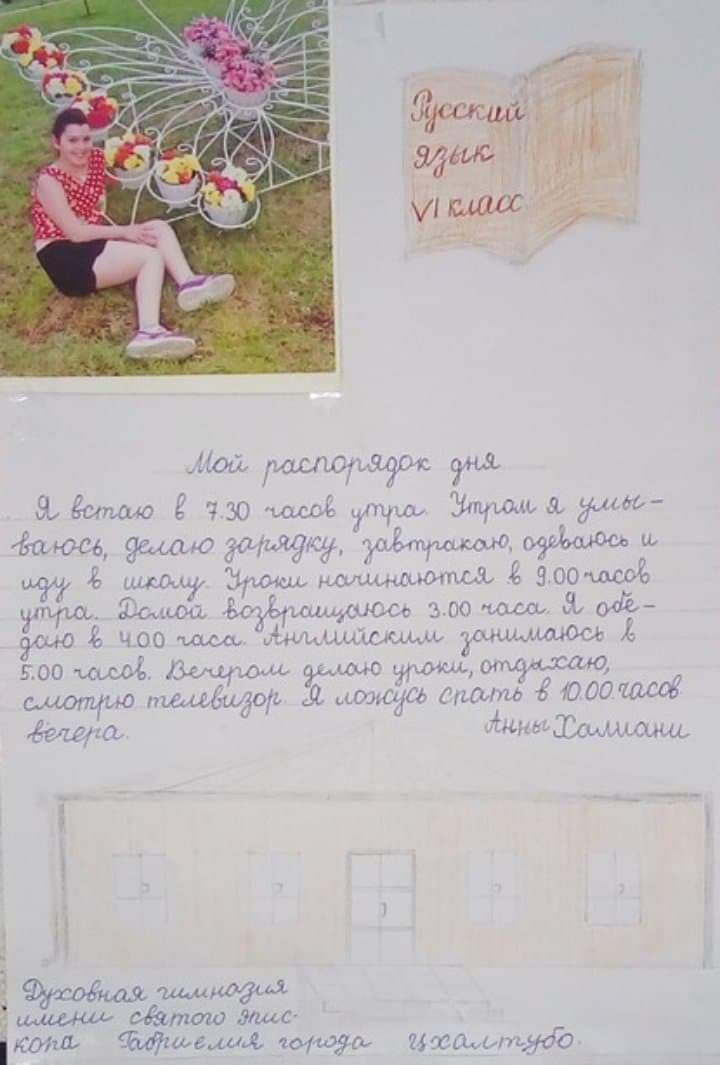 Русский
язык
VI класс
Мой распорядок дня
Я встаю в 7.30 часов утра. Утром я умы-
ваюсь, делаю зарядку, завтракаю, одеваюсь и
иду в школу. Уроки начинаются в 9.00 часов
утра. Домой возвращаюсь 3.00 часа. Я обе-
даю в 4.00 часа. Английским занимаюсь в
5.00 часов. Вечером делаю уроки, отдыхаю,
смотрю телевизор. Я ложусь спать в 10.00.часов
вечера.
Анны Халиани
Духовная гимназия
имени святого эпис-
копа Габриелия города Цхалтубо.